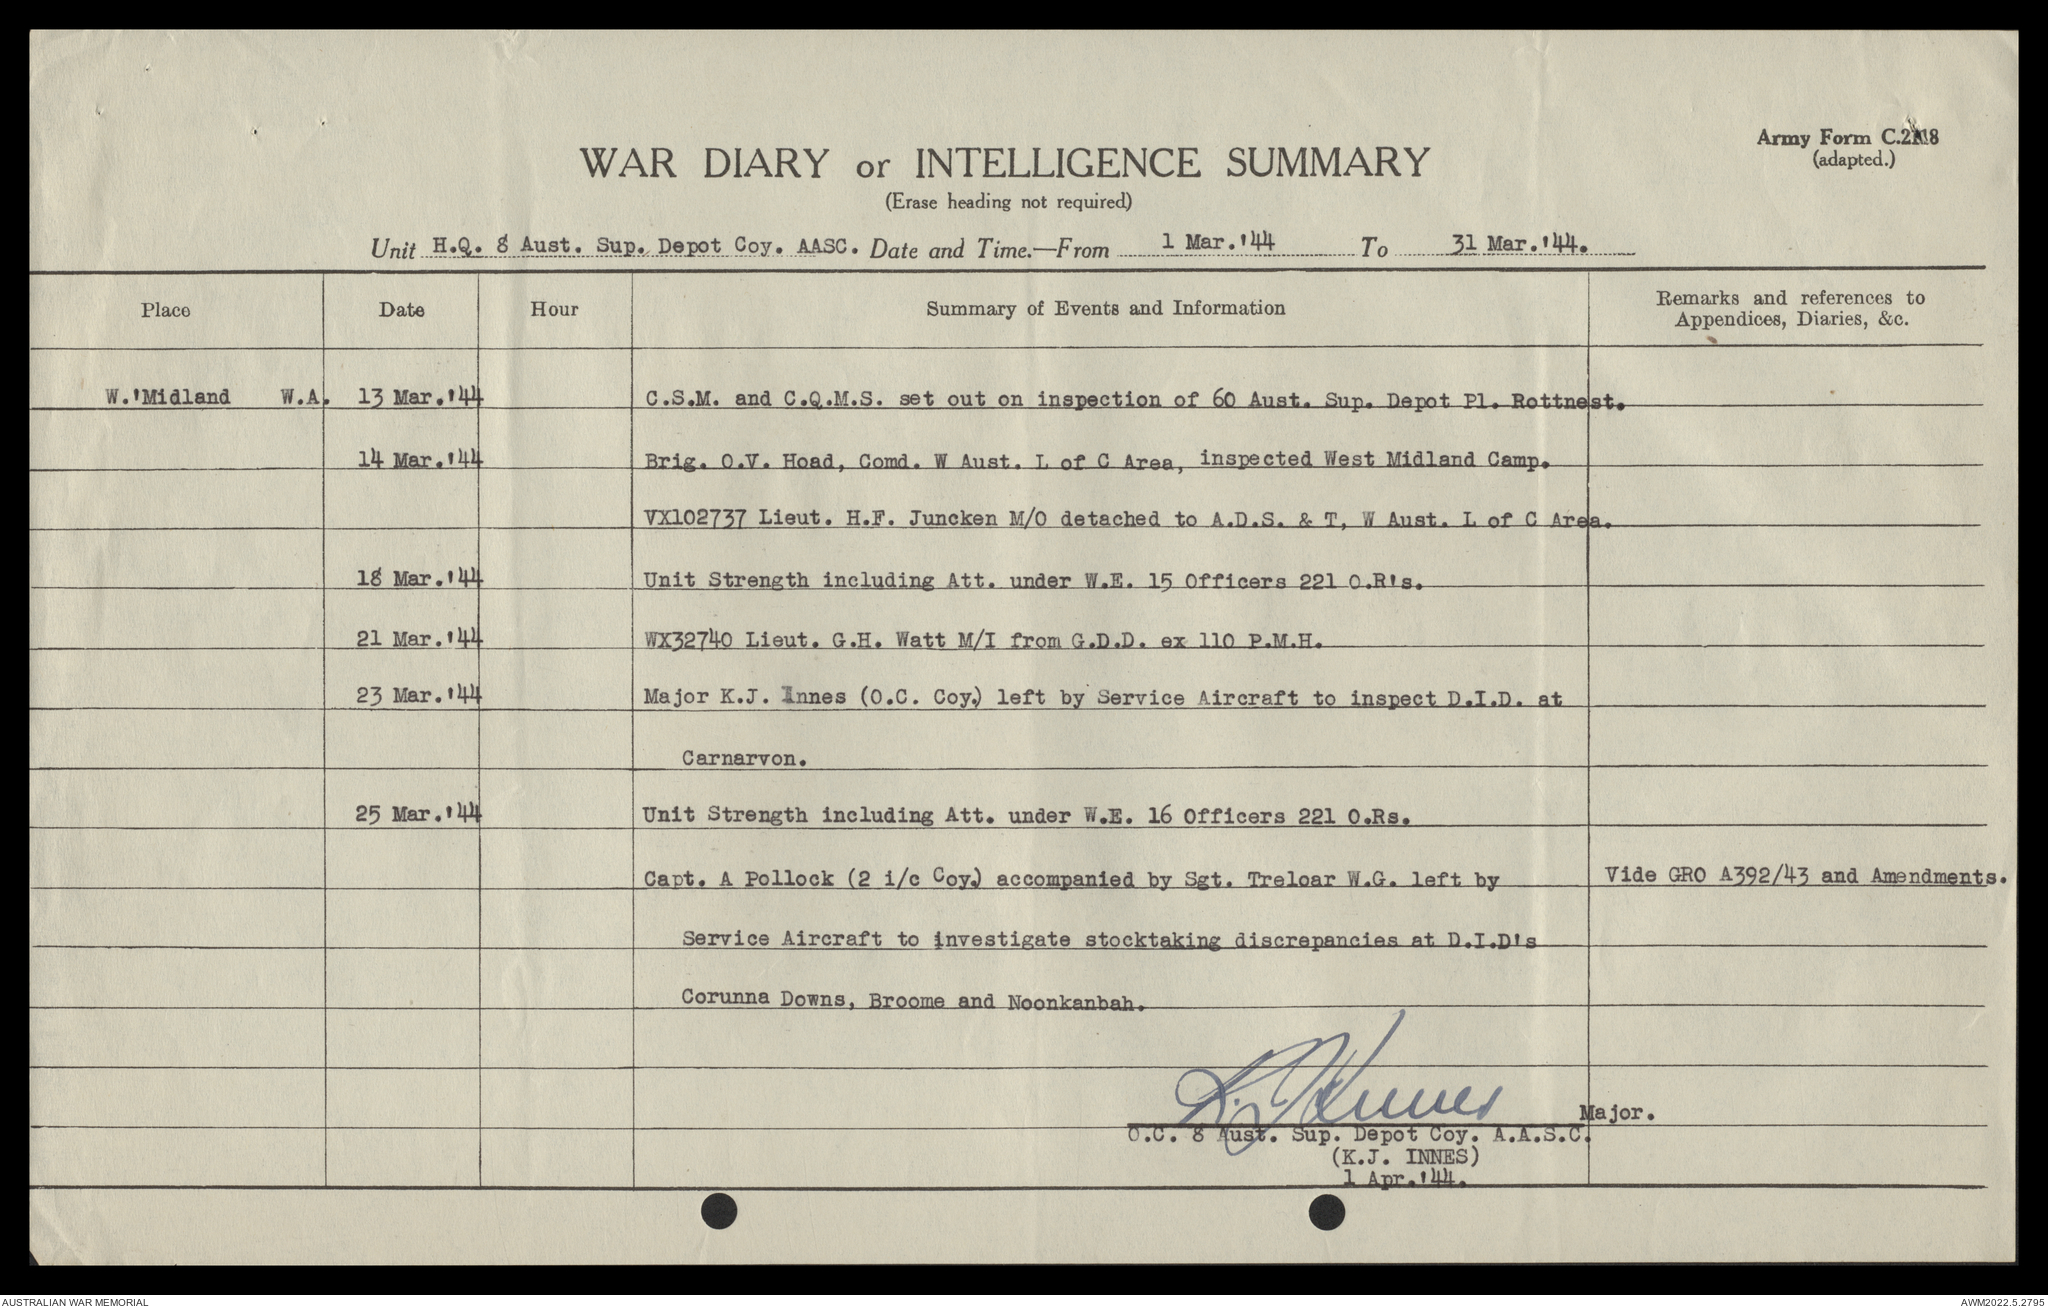 Army Form C.2118
(adapted.)
WAR DIARY or INTELLIGENCE SUMMARY
(Erase heading not required)
Unit H.Q. 8 Aust. Sup. Depot Coy. AASC. Date and Time.—From 1 Mar.'44 To 31 Mar.'44.
Place Date Hour Summary of Events and Information Remarks and references to
Appendices, Diaries, &c.
W.'Midland W.A. 13 Mar.'44 C.S.M. and C.Q.M.S. set out on inspection of 60 Aust. Sup. Depot Pl. Rottnest.
14 Mar.'44 Brig. O.V. Hoad, Comd. W Aust. L of C Area, inspected West Midland Camp.
VX102737 Lieut. H.F. Juncken M/O detached to A.D.S. & T, W Aust. L of C Area.
18 Mar.'44 Unit Strength including Att. under W.E. 15 Officers 221 O.R's.
21 Mar.'44 WX32740 Lieut. G.H. Watt M/I from G.D.D. ex 110 P.M.H.
23 Mar.'44 Major K.J. Innes (O.C. Coy.) left by Service Aircraft to inspect D.I.D. at
Carnarvon.
25 Mar.'44 Unit Strength including Att. under W.E. 16 Officers 221 O.Rs.
Capt. A Pollock (2 i/c Coy.) accompanied by Sgt. Treloar W.G. left by Vide GRO A392/43 and Amendments.
Service Aircraft to investigate stocktaking discrepancies at D.I.D's
Corunna Downs, Broome and Noonkanbah.
K.J. Innes Major.
O.C. 8 Aust. Sup. Depot Coy. A.A.S.C.
(K.J. INNES)
1 Apr.'44.
AUSTRALIAN WAR MEMORIAL AWM2022.5.2795